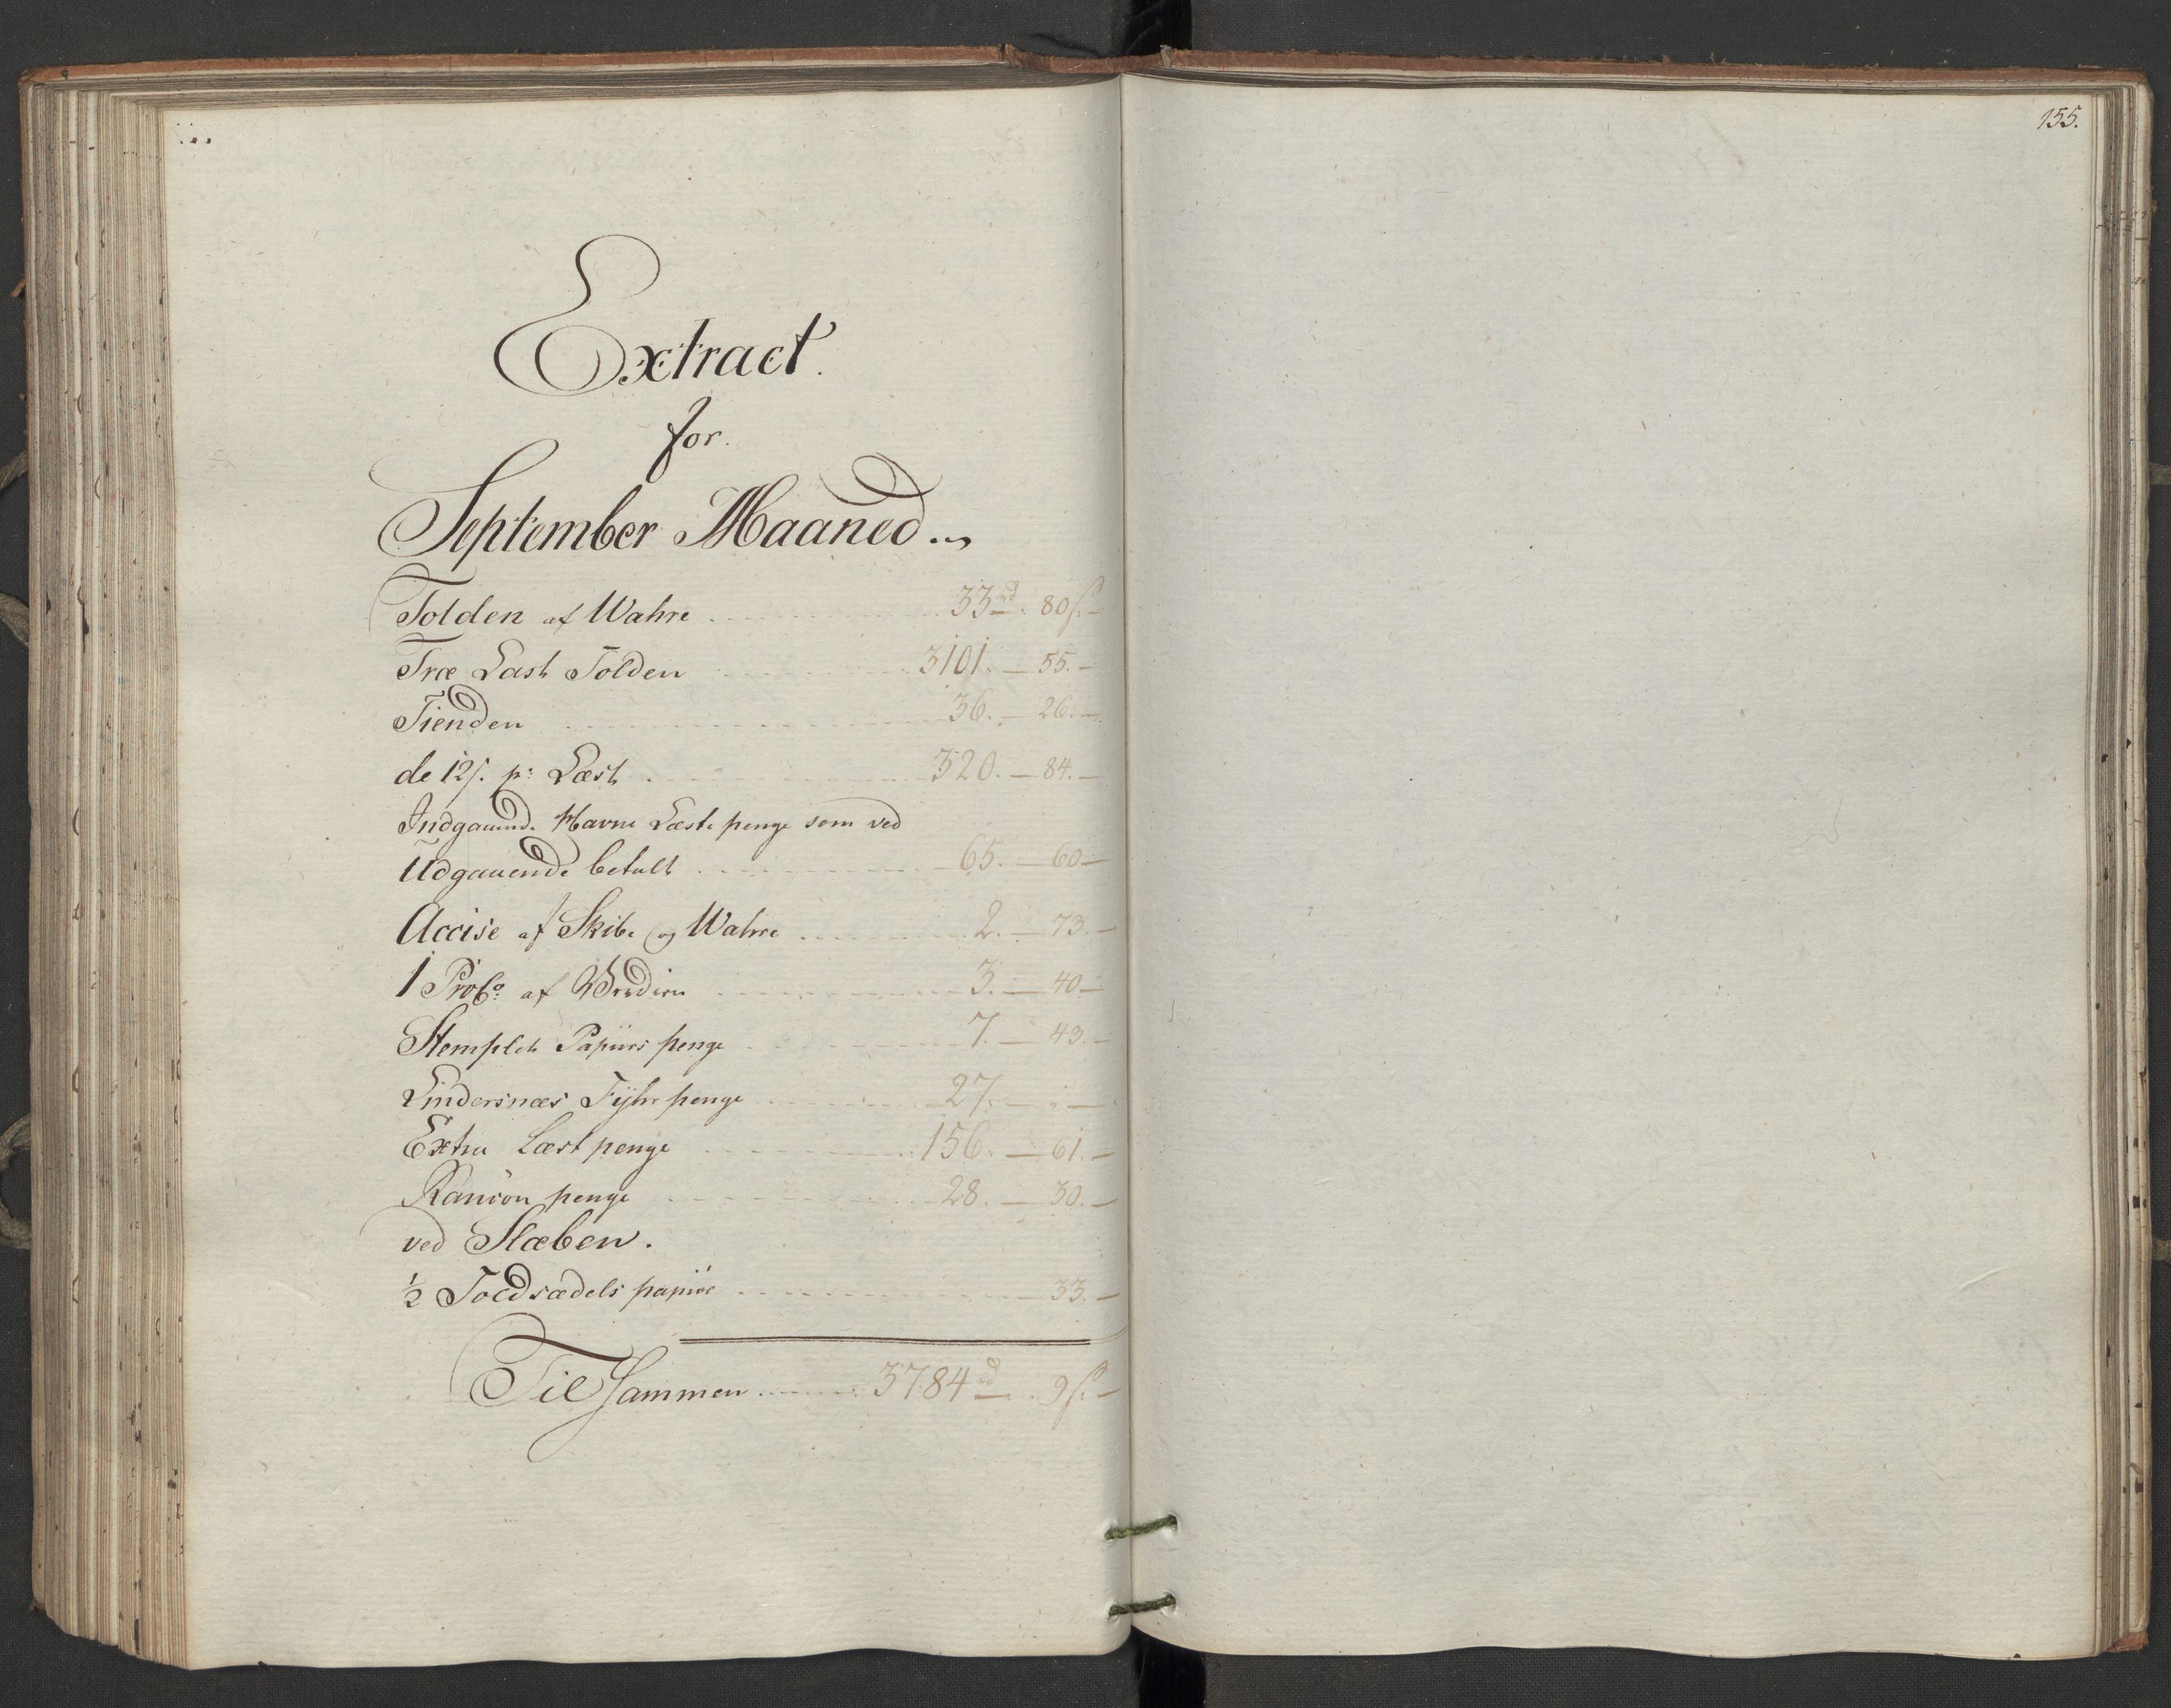 155.
Extract.
for.
September Maaned
Tolden af Wahre 33 rd. 80 s.
Træ Last Tolden 3101. 55.
Tienden 36. 26.
de 12 s. pr: Læst 320. 84.
Indgaaende Havne Læste penge som ved
Udgaaende betalt 65. 60
Accise af Skibe og Wahre 2. 73.
1 Prosº: af Værdien 3. 40
Stemplet Papiirs penge 7. 43.
Lindersnæs Fyhr penge 27.
Extra Læst penge 156. 61.
Ranson penge 28. 30.
ved Slæben.
½ Toldsædels papiir 33.
Til Sammen 3784 rd. 9 s.